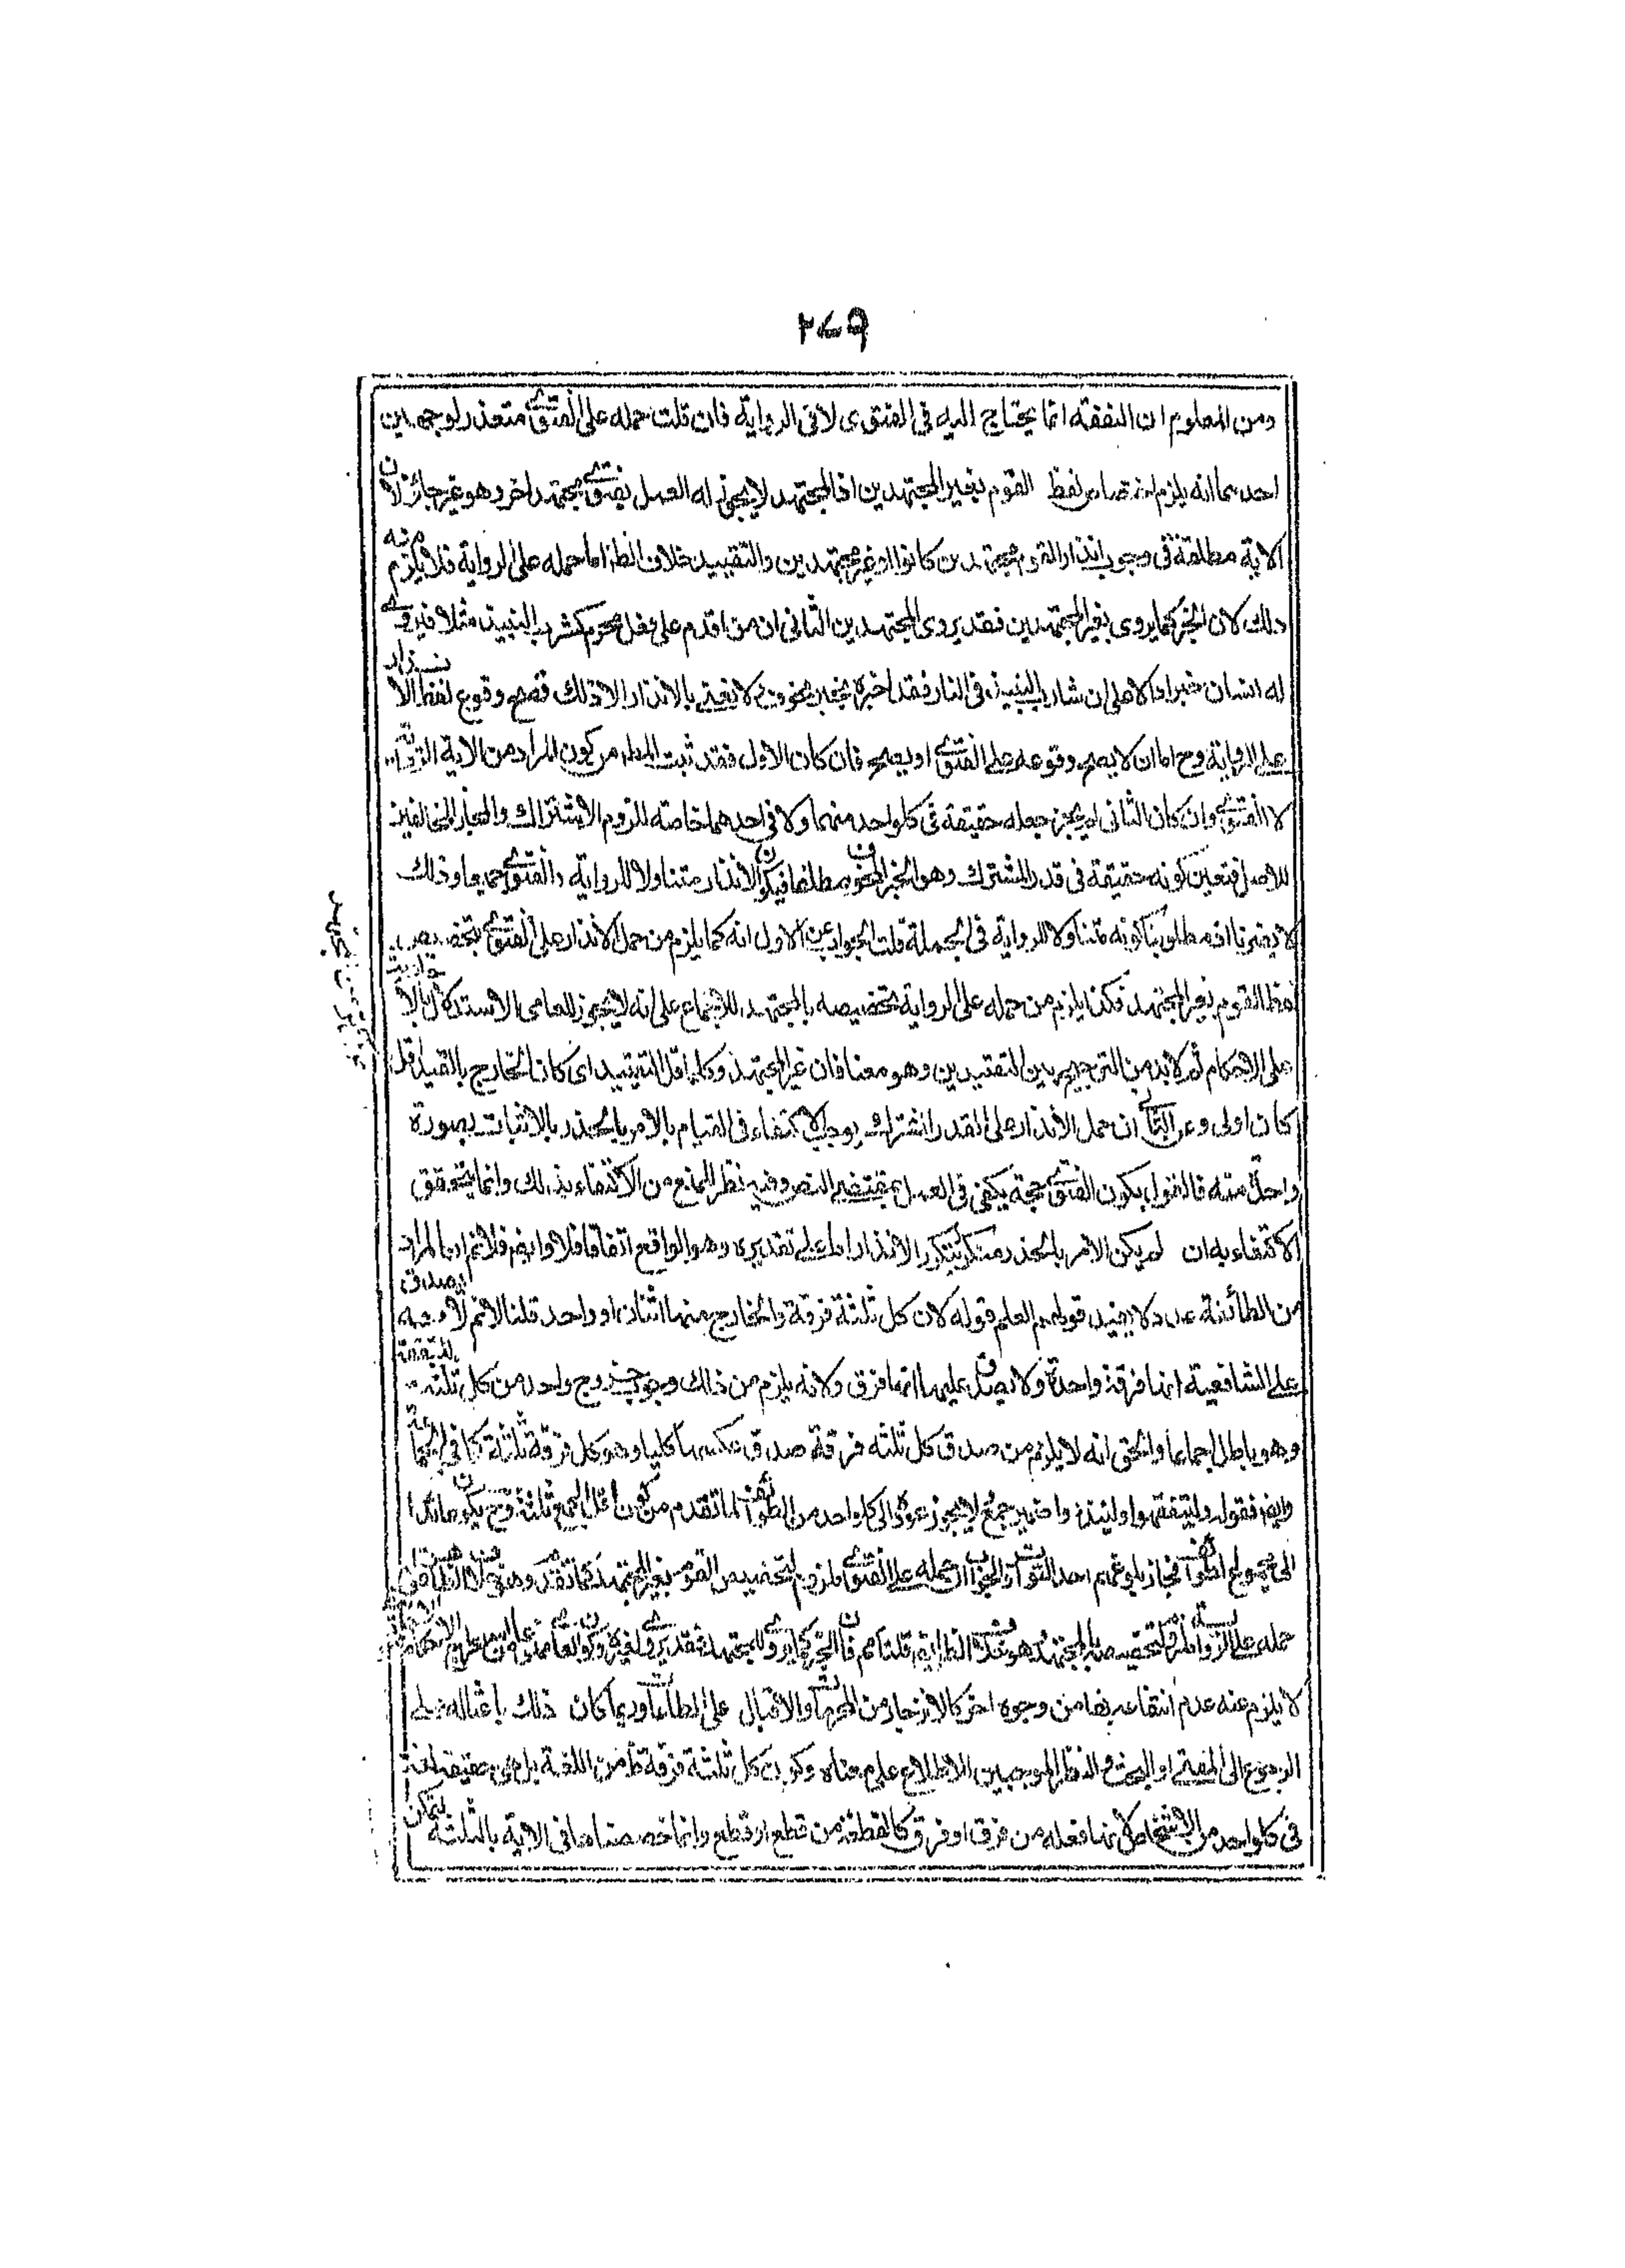 ٢٧٩
ومن المعلوم ان التفقه انما يحتاج اليه في الفتوى لا في الرواية فان قلت حمله على الفتوى متعذر لوجهين
احدهما انه يلزم اختصاص لفظ القوم بغير المجتهدين اذ المجتهد لا يجوز له العمل بفتوى مجتهد اخر وهو غير جائز لان
الاية مطلقة في وجوب انذار القوم مجتهدين كانوا او غير مجتهدين والتقييد خلاف الظ اما حمله على الرواية فلا يلزم منه
ذلك لان الخبر كما يروى بغير المجتهدين فقد يروى للمجتهدين الثاني ان من اقدم على فعل محرم كشرب النبيذ مثلا فيروى
له انسان خبرا دالا على ان شارب النبيذ في النار فقد اخبره بخبر مخوف ولا نعنى بالانذار الا ذلك فصح وقوع لفظ الانذار
على الرواية وح اما ان لا يصح وقوعه على الفتوى او يصح فان كان الاول فقد ثبت المط من كون المراد من الاية الرواية
لا الفتوى وان كان الثاني لم يجز جعله حقيقة في كل واحد منهما ولا في احدهما خاصه للزوم الاشتراك والمجاز المخالفين
للاصل فتعين كونه حقيقة في قدر المشترك وهو الخبر المخوف مطلقا فيكون الانذار متناولا للرواية والفتوى جميعا وذلك
لا يضرنا اذ مطلوبنا كونه متناولا للرواية في الجملة قلت الجواب عن الاول انه كما يلزم من حمل الانذار على الفتوى تخصيص
لفظ القوم بغير المجتهد فكذا يلزم من حمله على الرواية تخصيصه بالمجتهد للاجماع على انه لا يجوز للعامي الاستدلال بالاحاديث
على الاحكام ثم لا بد من الترجيح بين التقييدين وهو معنا فان غير المجتهد وكلما قل التقييد اى كان الخارج بالقيد اقل
كان اولى وعن الثاني ان حمل الانذار على القدر المشترك يوجب الاكتفاء في القيام بالامر بالحذر بالاثبات بصورة
واحدة منه فالقول بكون الفتوى حجة يكفى في العمل بمقتضى النص وفيه نظر للمنع من الاكتفاء بذلك وانما يتحقق
الاكتفاء به ان لم يكن الامر بالحذر متكررا بتكرر الانذار اما على تقديره وهو الواقع اتفاقا فلا وايض فلانم ان المراد
من الطائفة عدد لا يفيد قولهم العلم قوله لان كل ثلثة فرقة والخارج منها اثنان او واحد قلنا لانم لا وجه يصدق
على الشافعية انها فرقة واحدة ولا يصدق عليها انها فرق ولانه يلزم من ذلك وجوب خروج واحد من كل ثلثة للتفقه
وهو باطل اجماعا والحق انه لا يلزم من صدق كل ثلثه فرقة صدق عكسها كليا وهو كل فرقة ثلثة كما في الجماعة
وايض فقوله وليتفقهوا ولينذروا ضمير جمع لا يجوز عوده الى كل واحد من الطوائف لما تقدم من كون اقل الجمع ثلثة فح يكون عائدا
الى مجموع الطوائف فجاز بلوغهم احد التواتر والجواب ان حمله على الفتوى ملزوم لتخصيص القوم بغير المجتهد كما تقدم وهو خلاف الظ
حمله على الرواية ملزوم لتخصيصه بالمجتهد وهو خلاف الظ ايض قلنا نعم فان الخبر كما يروى للمجتهد فقد يروى لغيره وكون العامي
لا يلزم عنه عدم انتفاعه بها من وجوه اخر كالانزجار من المحرمات والاقبال على الطاعات وربما كان ذلك باعثا له على
الرجوع الى المفتى او البحث والنظر الموجبين للاطلاع على معناه وكون كل ثلثة فرقة ظ من اللغة بل هي حقيقة لغة
في كل واحد من الاشخاص لانها فعلة من فرق او فرق كالقطعة من قطع او قطع وانما خصصناها في الاية بالثلثة